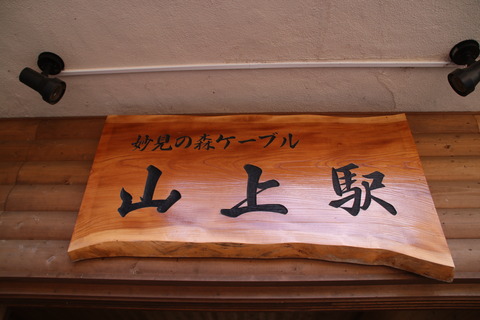 妙見の森ケーブル
山上駅